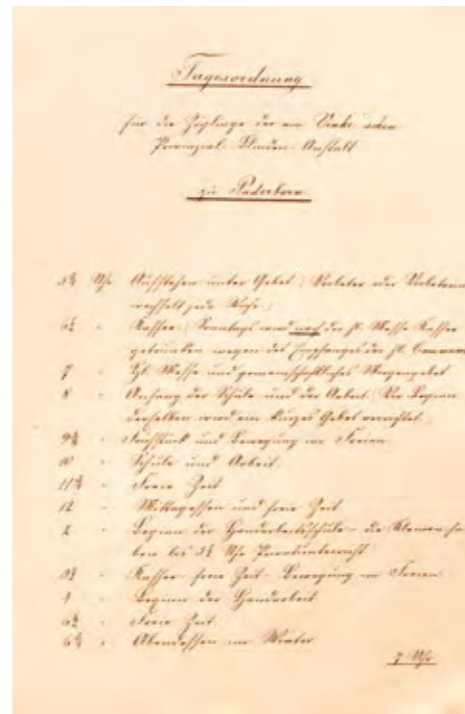 Tagesordnung
für die Zöglinge der von Vincke'schen
Provinzial-Blinden-Anstalt
zu Paderborn.
5½ Uhr Aufstehen unter Gebet (Vorbeter oder Vorbeterin
wechselt jede Woche.)
6½ " Kaffee. (Sonntags wird nach der hl. Messe Kaffee
getrunken wegen des Empfanges der hl. Commun
7 " Hl. Messe und gemeinschaftliches Morgengebet
8 " Anfang der Schule und der Arbeit. Vor Beginn
derselben wird ein kurzes Gebet verrichtet.
9¾ " Frühstück und Bewegung im Freien.
10 " Schule und Arbeit.
11¾ " Freie Zeit
12 " Mittagessen und freie Zeit
2 " Beginn der Handarbeitsschule - die Kleinen ha-
ben bis 3½ Uhr Privatunterricht
3½ " Kaffee - freie Zeit - Bewegung im Freien.
4 " Beginn der Handarbeit
6½ " Freie Zeit
6¾ " Abendessen im Winter
7 Uhr